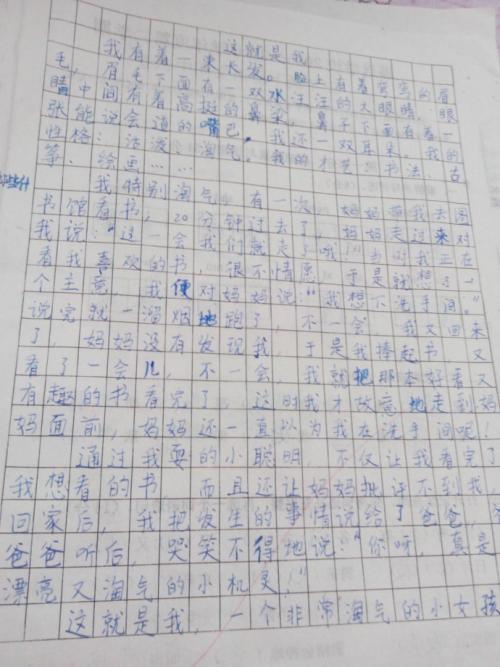 这就是我
我有着一束长发。脸上有着弯弯的眉
毛，眉毛下面有一双水汪汪的大眼睛，眼
睛中间有着高挺的鼻梁。鼻子下面有着一
张能说会道的嘴巴。我还一双耳朵。我的
性格：活泼、淘气。我的才艺：书法、古
筝、绘画……
我特别淘气，有一次，妈妈带我去图
书馆看书，20分钟过去了，妈妈走过来对
我说：“这一会我们就走了哦！”当时我正在
看我喜欢的书，很不情愿，于是就想了一
个主意，我便对妈妈说：“我想下洗手间。”
说完就一溜烟地跑了，不一会，我又回来
了，妈妈没有发现我，于是我捧起书，又
看了一会儿，不一会，我就把那本好看又
有趣的书看完了，这时我才故意地走到妈
妈面前，妈妈还一直以为我在洗手间呢！
通过我耍的小聪明，不仅让我看完了
我想看的书，而且还让妈妈批评不到我，
回家后，我把发生的事情说给了爸爸，
爸爸听后，哭笑不得地说：“你呀，真是
漂亮又淘气的小机灵！”
这就是我，一个非常淘气的小女孩